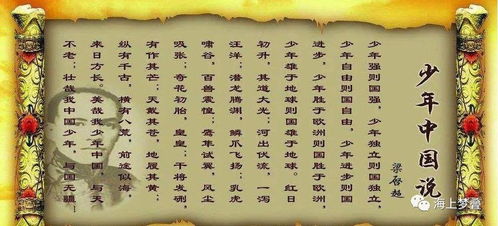 少年中国说
梁启超
少年强则国强，少年独立则国独立，
少年自由则国自由，少年进步则国
进步，少年胜于欧洲则国胜于欧洲，
少年雄于地球国雄于地球。红日
初升，其道大光；河出伏流，一泻
汪洋；潜龙腾渊，鳞爪飞扬；乳虎
啸谷，百兽震惶；鹰隼试翼，风尘
吸张；奇花初胎，皇皇；干将发硎，
有作其芒；天戴其苍，地履其黄；
纵有千古，横有八荒，前途似海，
来日方长。美哉我少年中国，与天
不老；壮哉我中国少年，与国无疆！
海上梦叠